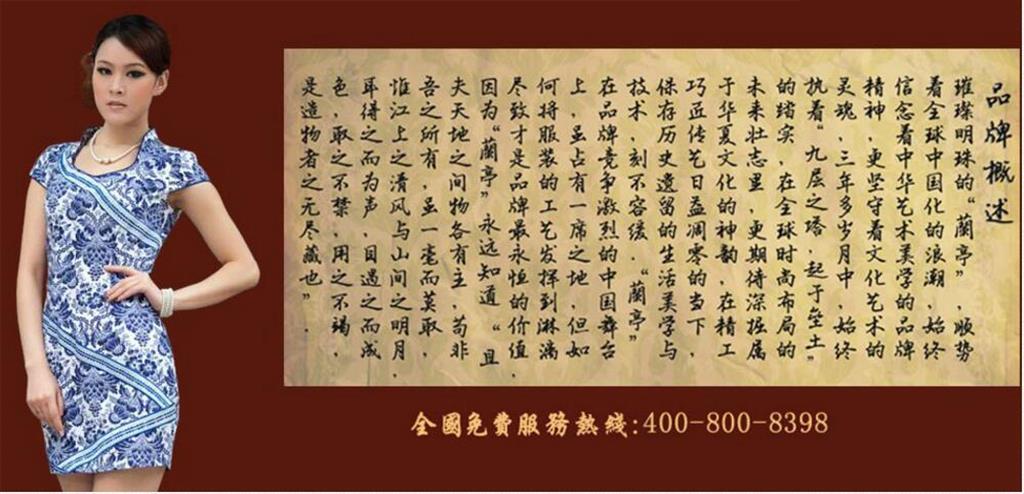 品牌概述
璀璨明珠的“蘭亭”,顺势
着全球中国化的浪潮,始终
信念着中华艺术美学的品牌
精神,更坚守着文化艺术的
灵魂,三年多岁月中,始终
执着“九层之塔,起于垒土”
的踏实,在全球时尚布局的
未来壮志里,更期待深掘属
于华夏文化的神韵,在精工
巧匠传艺日益凋零的当下,
保存历史遗留的生活美学与
技术,刻不容缓,“蘭亭”
在品牌竞争激烈的中国舞台
上,虽占有一席之地,但如
何将服装的工艺发挥到淋漓
尽致才是品牌最永恒的价值,
因为“蘭亭”永远知道“且
夫天地之间物各有主,苟非
吾之所有,虽一毫而莫取,
惟江上之清风与山间之明月,
耳得之而为声,目遇之而成
色,取之不禁,用之不竭,
是造物者之无尽藏也”.
全國免費服務熱綫:400-800-8398